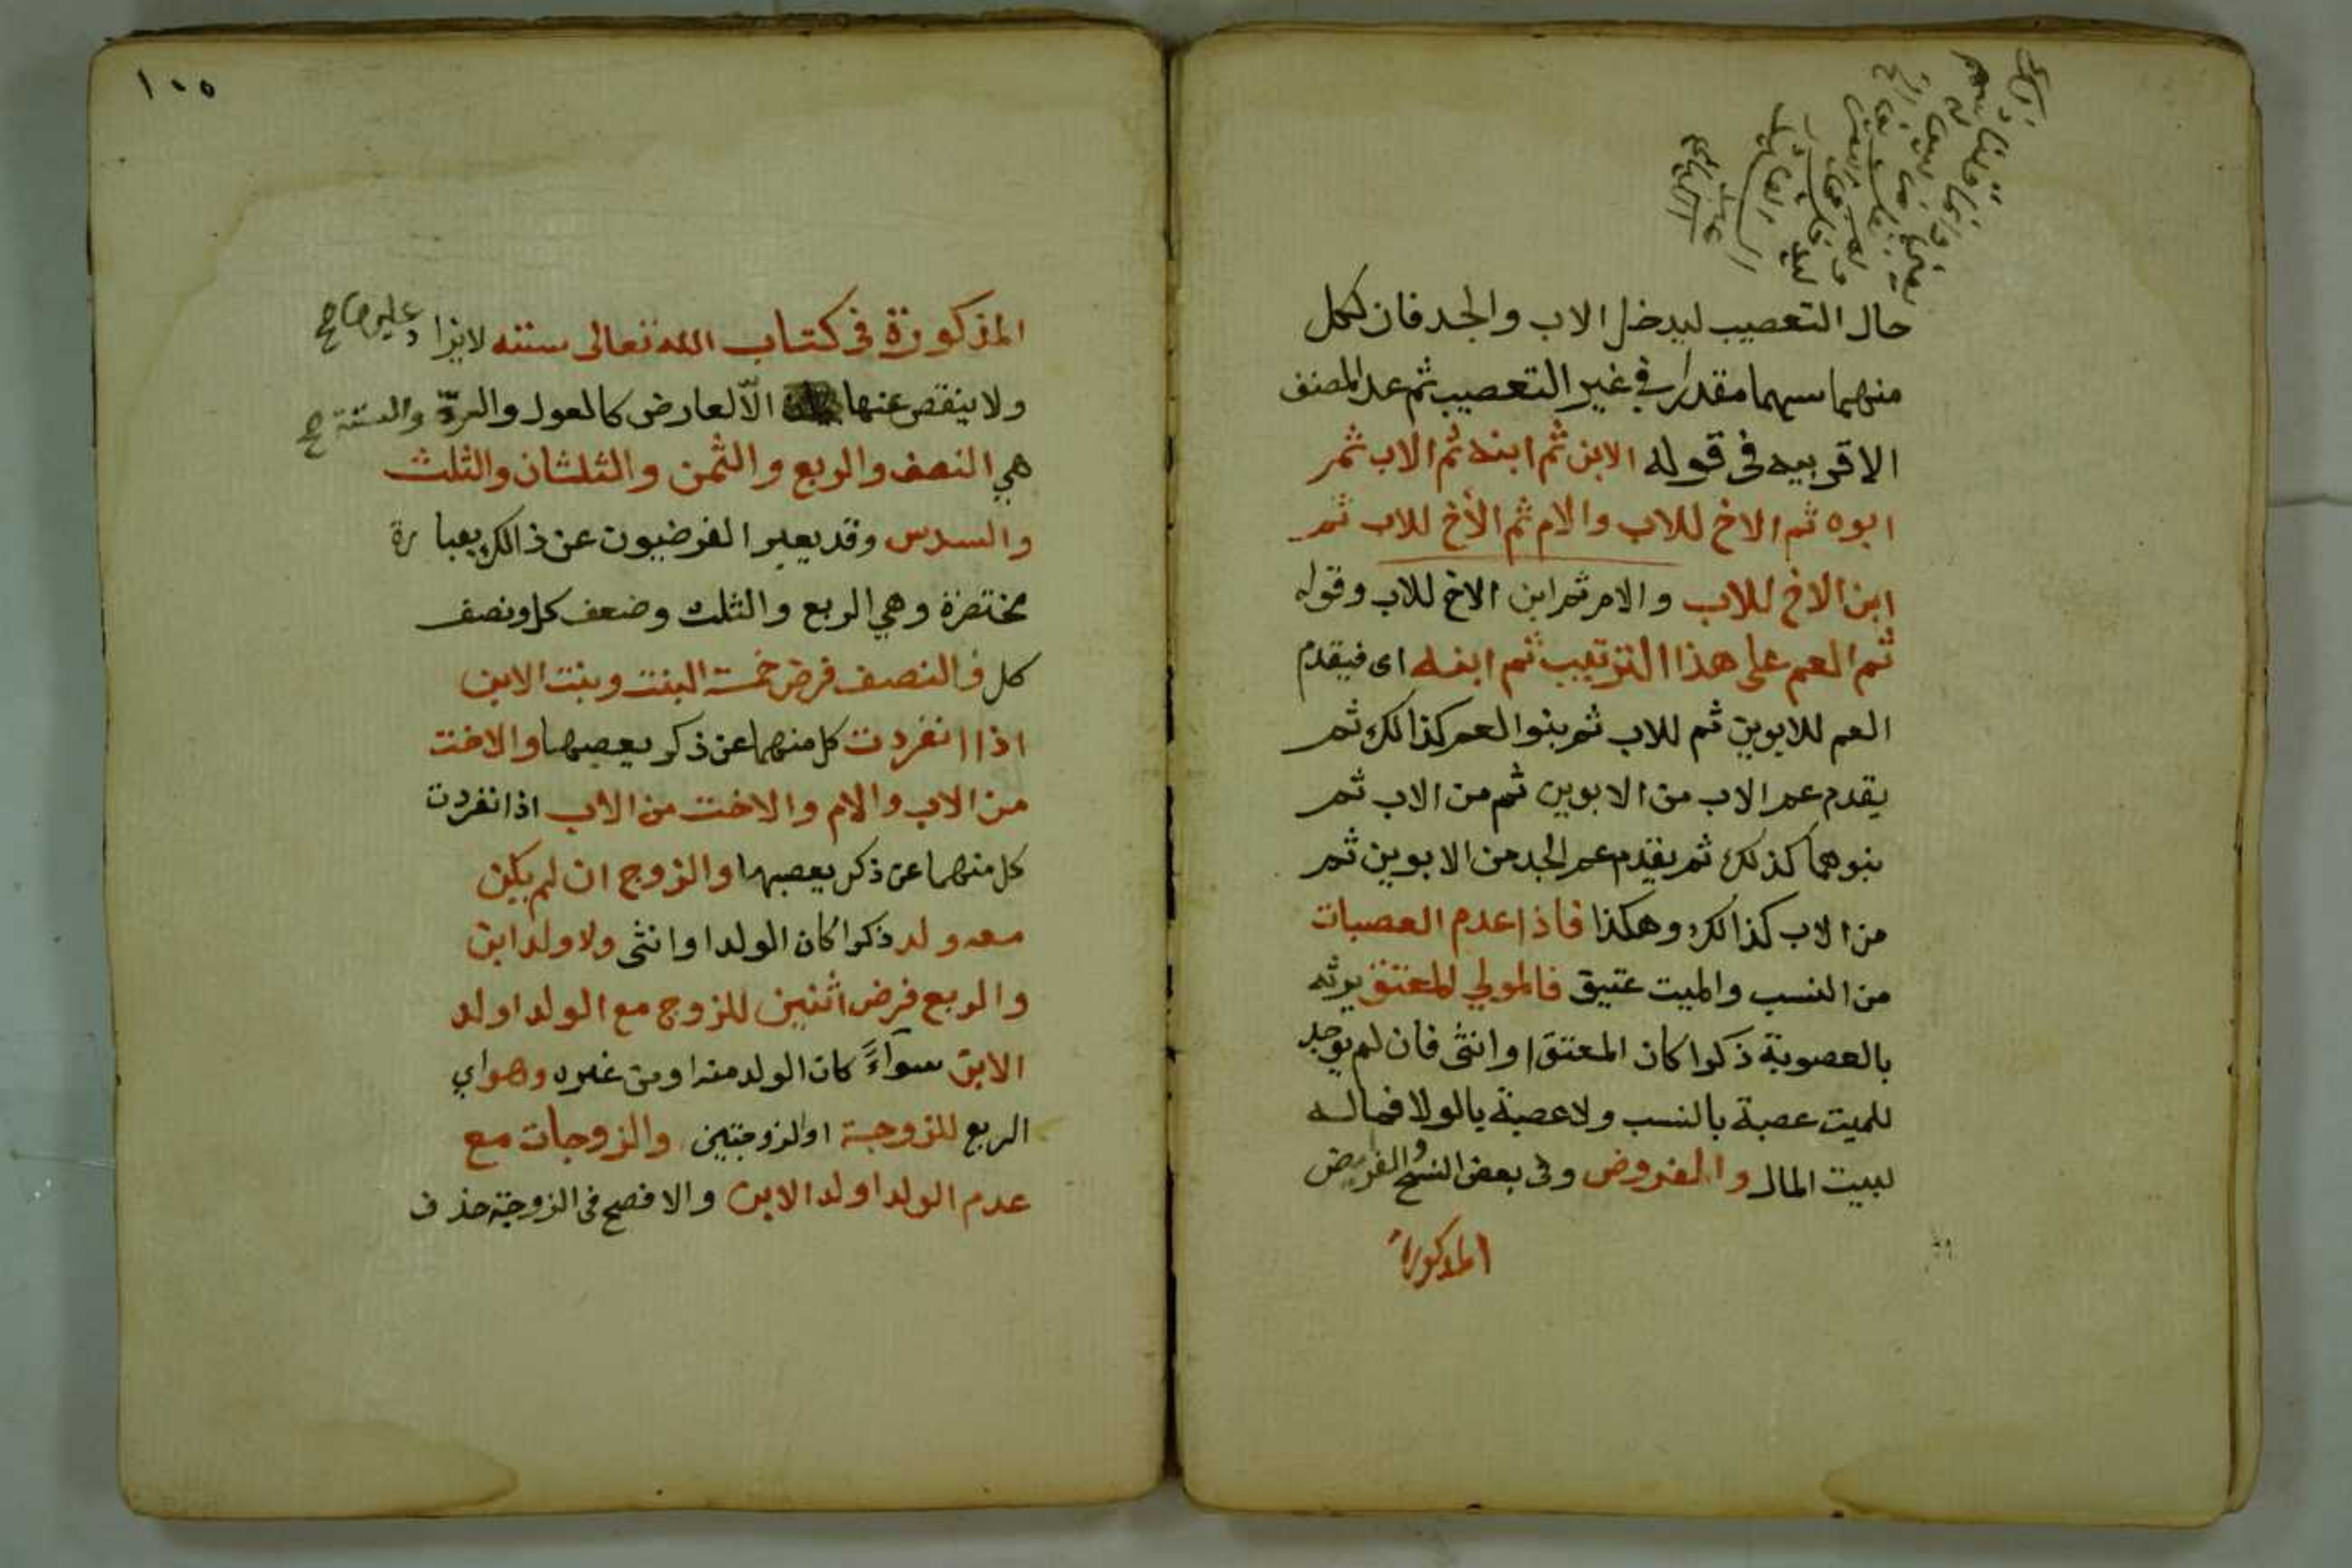 حال التعصيب ليدخل الاب والجد فان لكل
منهما سهما مقدرا في غير التعصيب ثم عد المصنف
الاقربيه في قوله الابن ثم ابنه ثم الاب ثم
ابوه ثم الاخ للاب والام ثم الأخ للاب ثم
ابن الاخ للاب والام ثم ابن الاخ للاب وقوله
ثم العم على هذا الترتيب ثم ابنه اى فيقدم
العم للابوين ثم للاب ثم بنوا العم كذالك ثم
يقدم عم الاب من الابوين ثم من الاب ثم
بنوهما كذلك ثم يقدم عم الجد من الابوين ثم
من الاب كذالك وهكذا فاذا عدم العصبات
من النسب والميت عتيق فالمولي المعتق يرثه
بالعصوبة ذكرا كان المعتق او انثى فان لم يوجد
للميت عصبة بالنسب ولا عصبة بالولا فماله
لبيت المال والفروض وفى بعض النسخ والفروض
المذكورة
١٠٥
المذكورة في كتاب الله تعالى ستته لايزاد عليها صح
ولا ينقص عنها الّا لعارض كالعول والردّ والستة صح
هي النصف والربع والثمن والثلثان والثلث
والسدس وقد يعبر الفرضيون عن ذالك بعبارة
مختصرة وهي الربع والثلث وضعف كل ونصف
كل فالنصف فرض خمسة البنت وبنت الابن
اذا انفردت كل منهما عن ذكر يعصبها والاخت
من الاب والام والاخت من الاب اذا نفردت
كل منهما عن ذكر يعصبها والزوج ان لم يكن
معه ولد ذكرا كان الولد او انثى ولا ولد ابن
والربع فرض اثنين للزوج مع الولد او ولد
الابن سوآءً كان الولد منه او من غيره وهو اي
الربع للزوجة او الزوجتين والزوجات مع
عدم الولد او ولد الابن والافصح فى الزوجة حذف